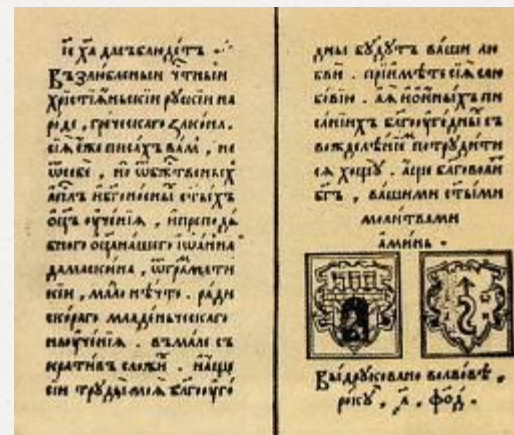 іс҃ х҃а да съблюдетъ
Възлюбленыи чⷭ҇тныи
хрїстїа́ньскїи рꙋ́сскїи на
роде , гре́ческаго зако́на .
сїѧ̀ е҆́же писа́хъ ва́мъ , не
ѿ себѐ , но ѿ бж҃твеныхъ
а҆пл҃ъ и҆ бг҃оно́сныхъ ст҃ы́хъ
ѻ҆ц҃ъ ᲂу҆че́нїѧ , и҆ преподо́
бнаго ѻ҆ц҃а на́шего і҆ѡа́нна
дамаски́на , ѿ грама́ти
кїи , ма́ло нѣ́что . ра́ди
ско́раго младе́ньческаго
наᲂуче́нїѧ . въма́ле съ
крати́въ сложи́ . и҆ а҆́ще
сїи трꙋды̀ моѧ̀ бл҃гоᲂуго́
дны бꙋ́дꙋтъ ва́ши лю
бви . прїими́те сїѧ̀ съ лю
бо́вїю . а҆ ꙗ҆̀ и҆ ѡ҆ и҆ны́хъ пи
са́нїихъ бл҃гоᲂуго́дныхъ съ
вожделѣ́нїе потрꙋди́ти
сѧ хощꙋ̀ . а҆́ще благоволи́тъ
бг҃ъ , ва́шими ст҃ы́ми
моли́твами
а҆ми́нь .
Вы́дрꙋковано во львове ,
рокꙋ , ҂а҃ . фо҃д .